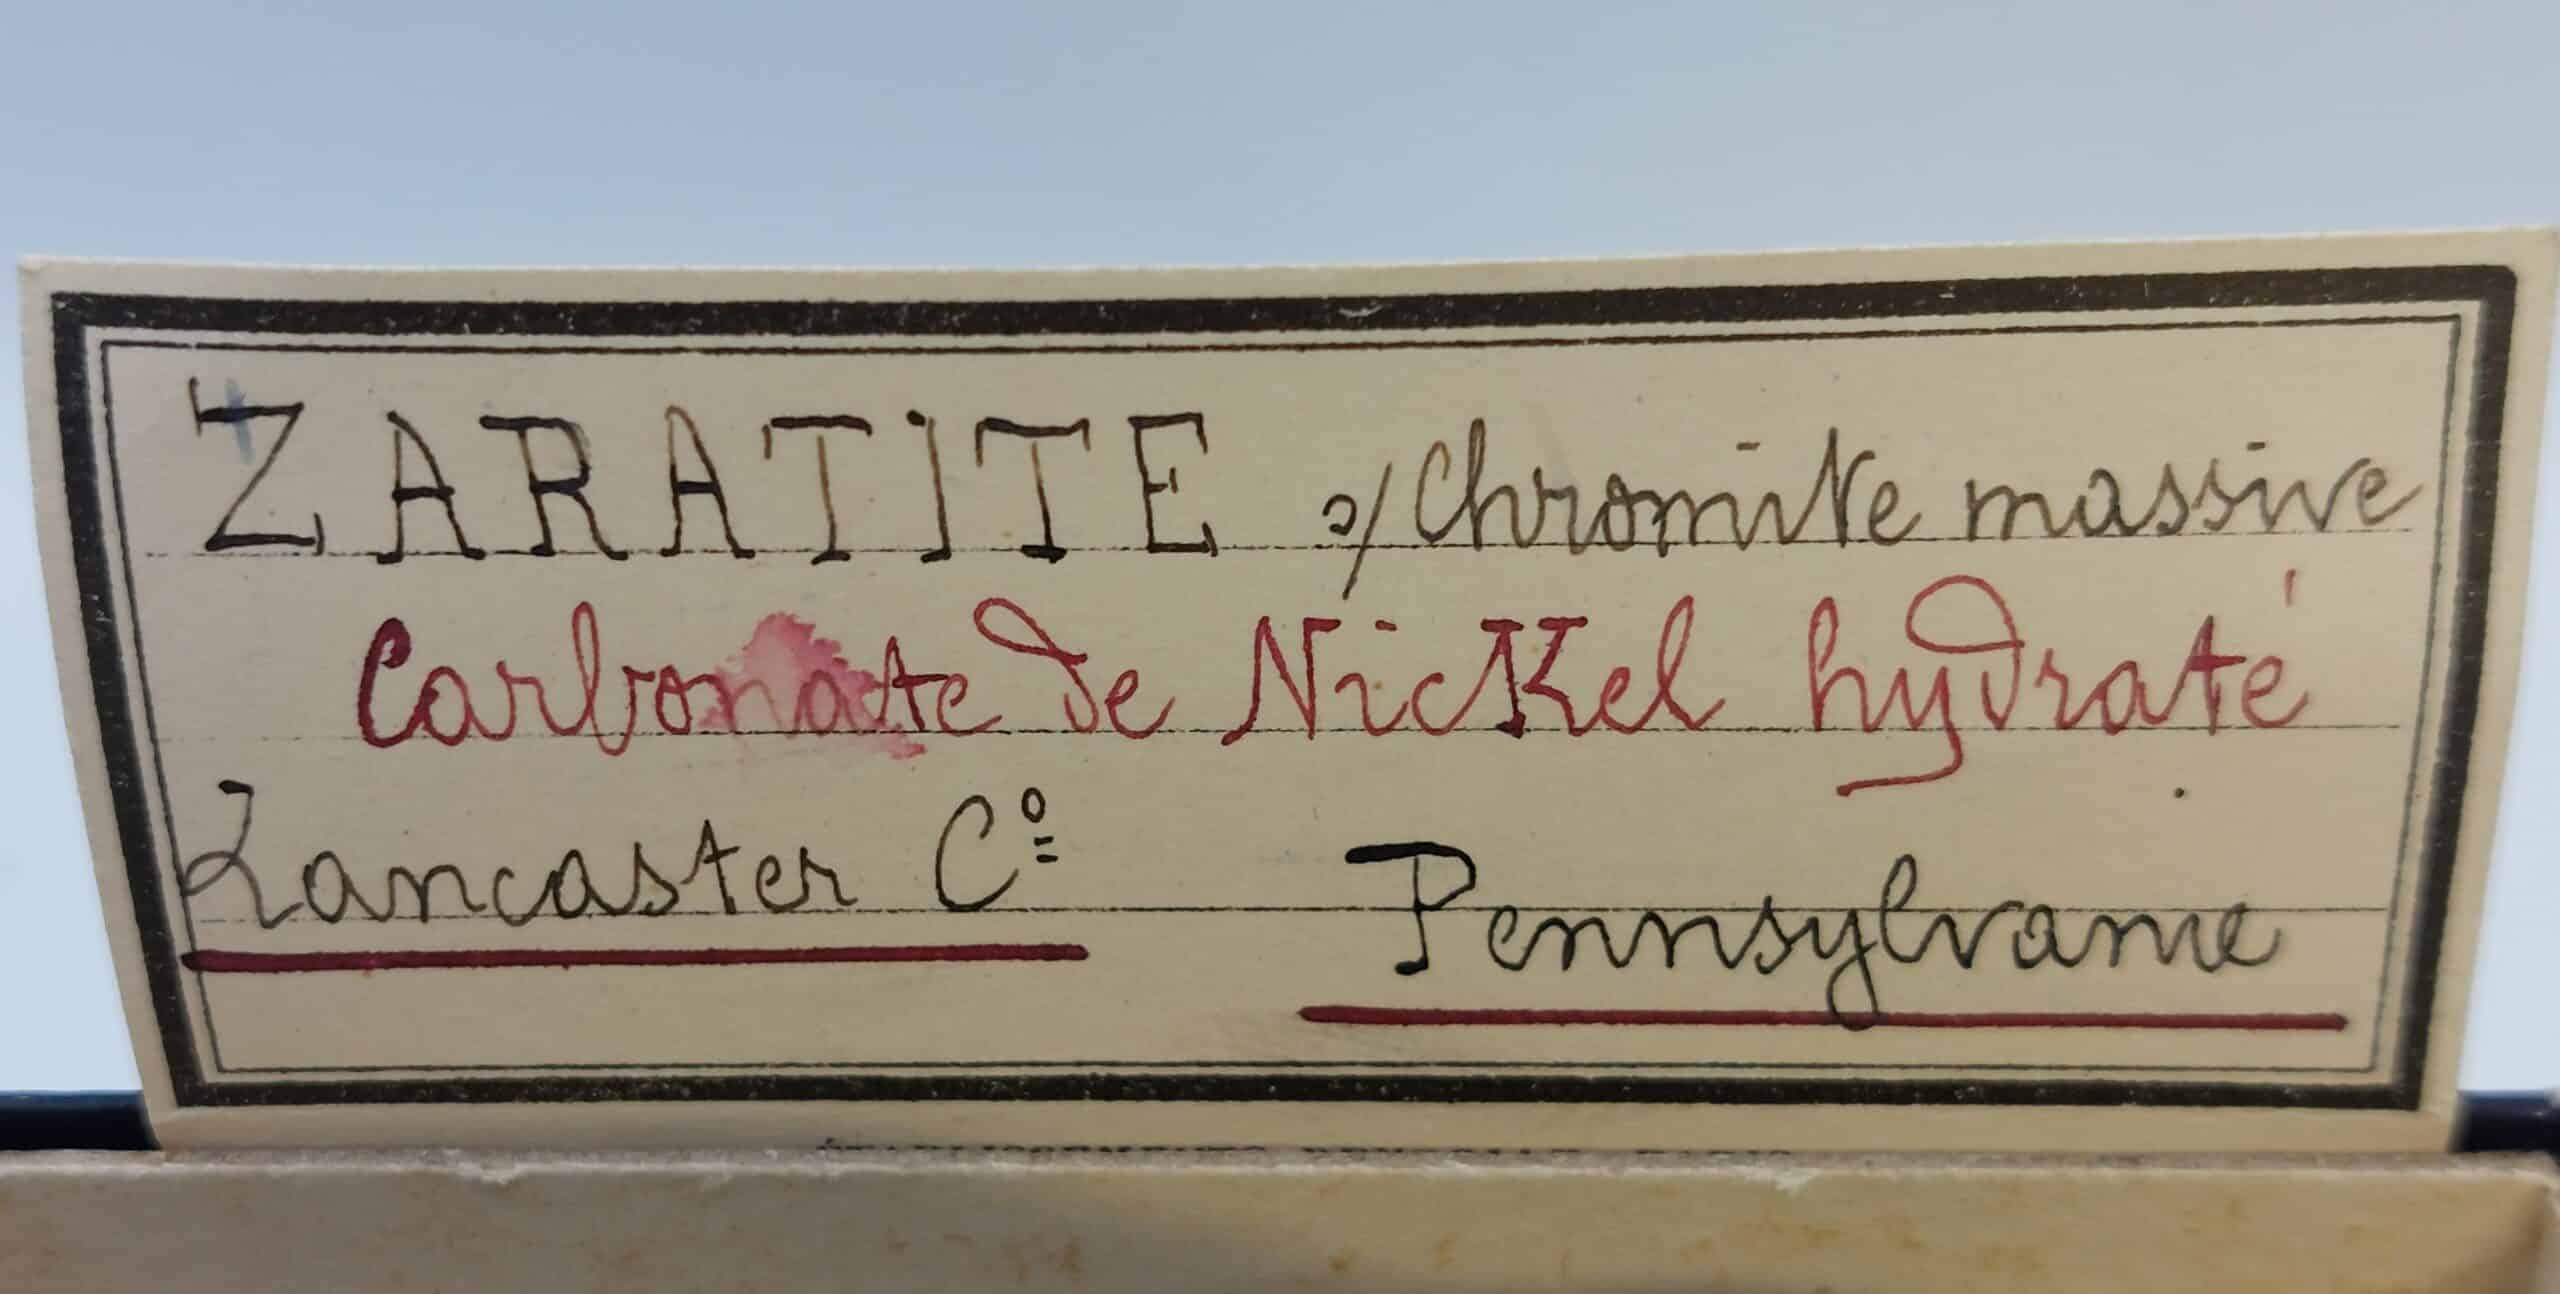 ZARATITE s/ Chromite massive
Carbonate de Nickel hydraté
Lancaster Cº
Pennsylvanie